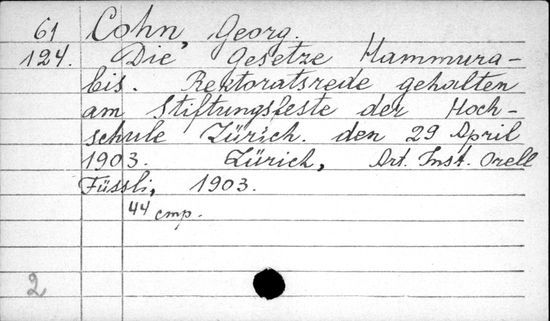 61 Cohn, Georg.
124. Die Gesetze Hammura-
bis. Rektoratsrede gehalten
am Stiftungsfeste der Hoch-
schule Zürich. den 29 April
1903. Zürich, Art. Inst. Orell
Füssli, 1903.
44 стр.
2